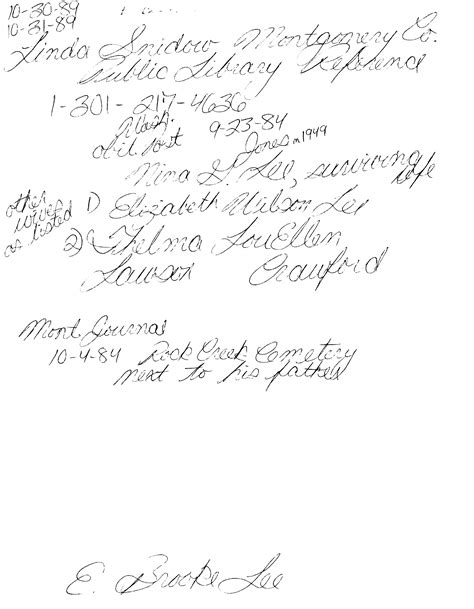 10-30-89
10-31-89
Linda Snidow Montgomery Co.
Public Library Reference
1-301-217-4636
Wash.
obit. Post 9-23-84
Jones m 1949
Nina G. Lee, surviving wife
other wives as listed
1) Elizabeth Wilson Lee
2) Thelma LouEllen
Lawson Crawford
Mont Journal
10-4-84 Rock Creek Cemetery
next to his father
E. Brooke Lee